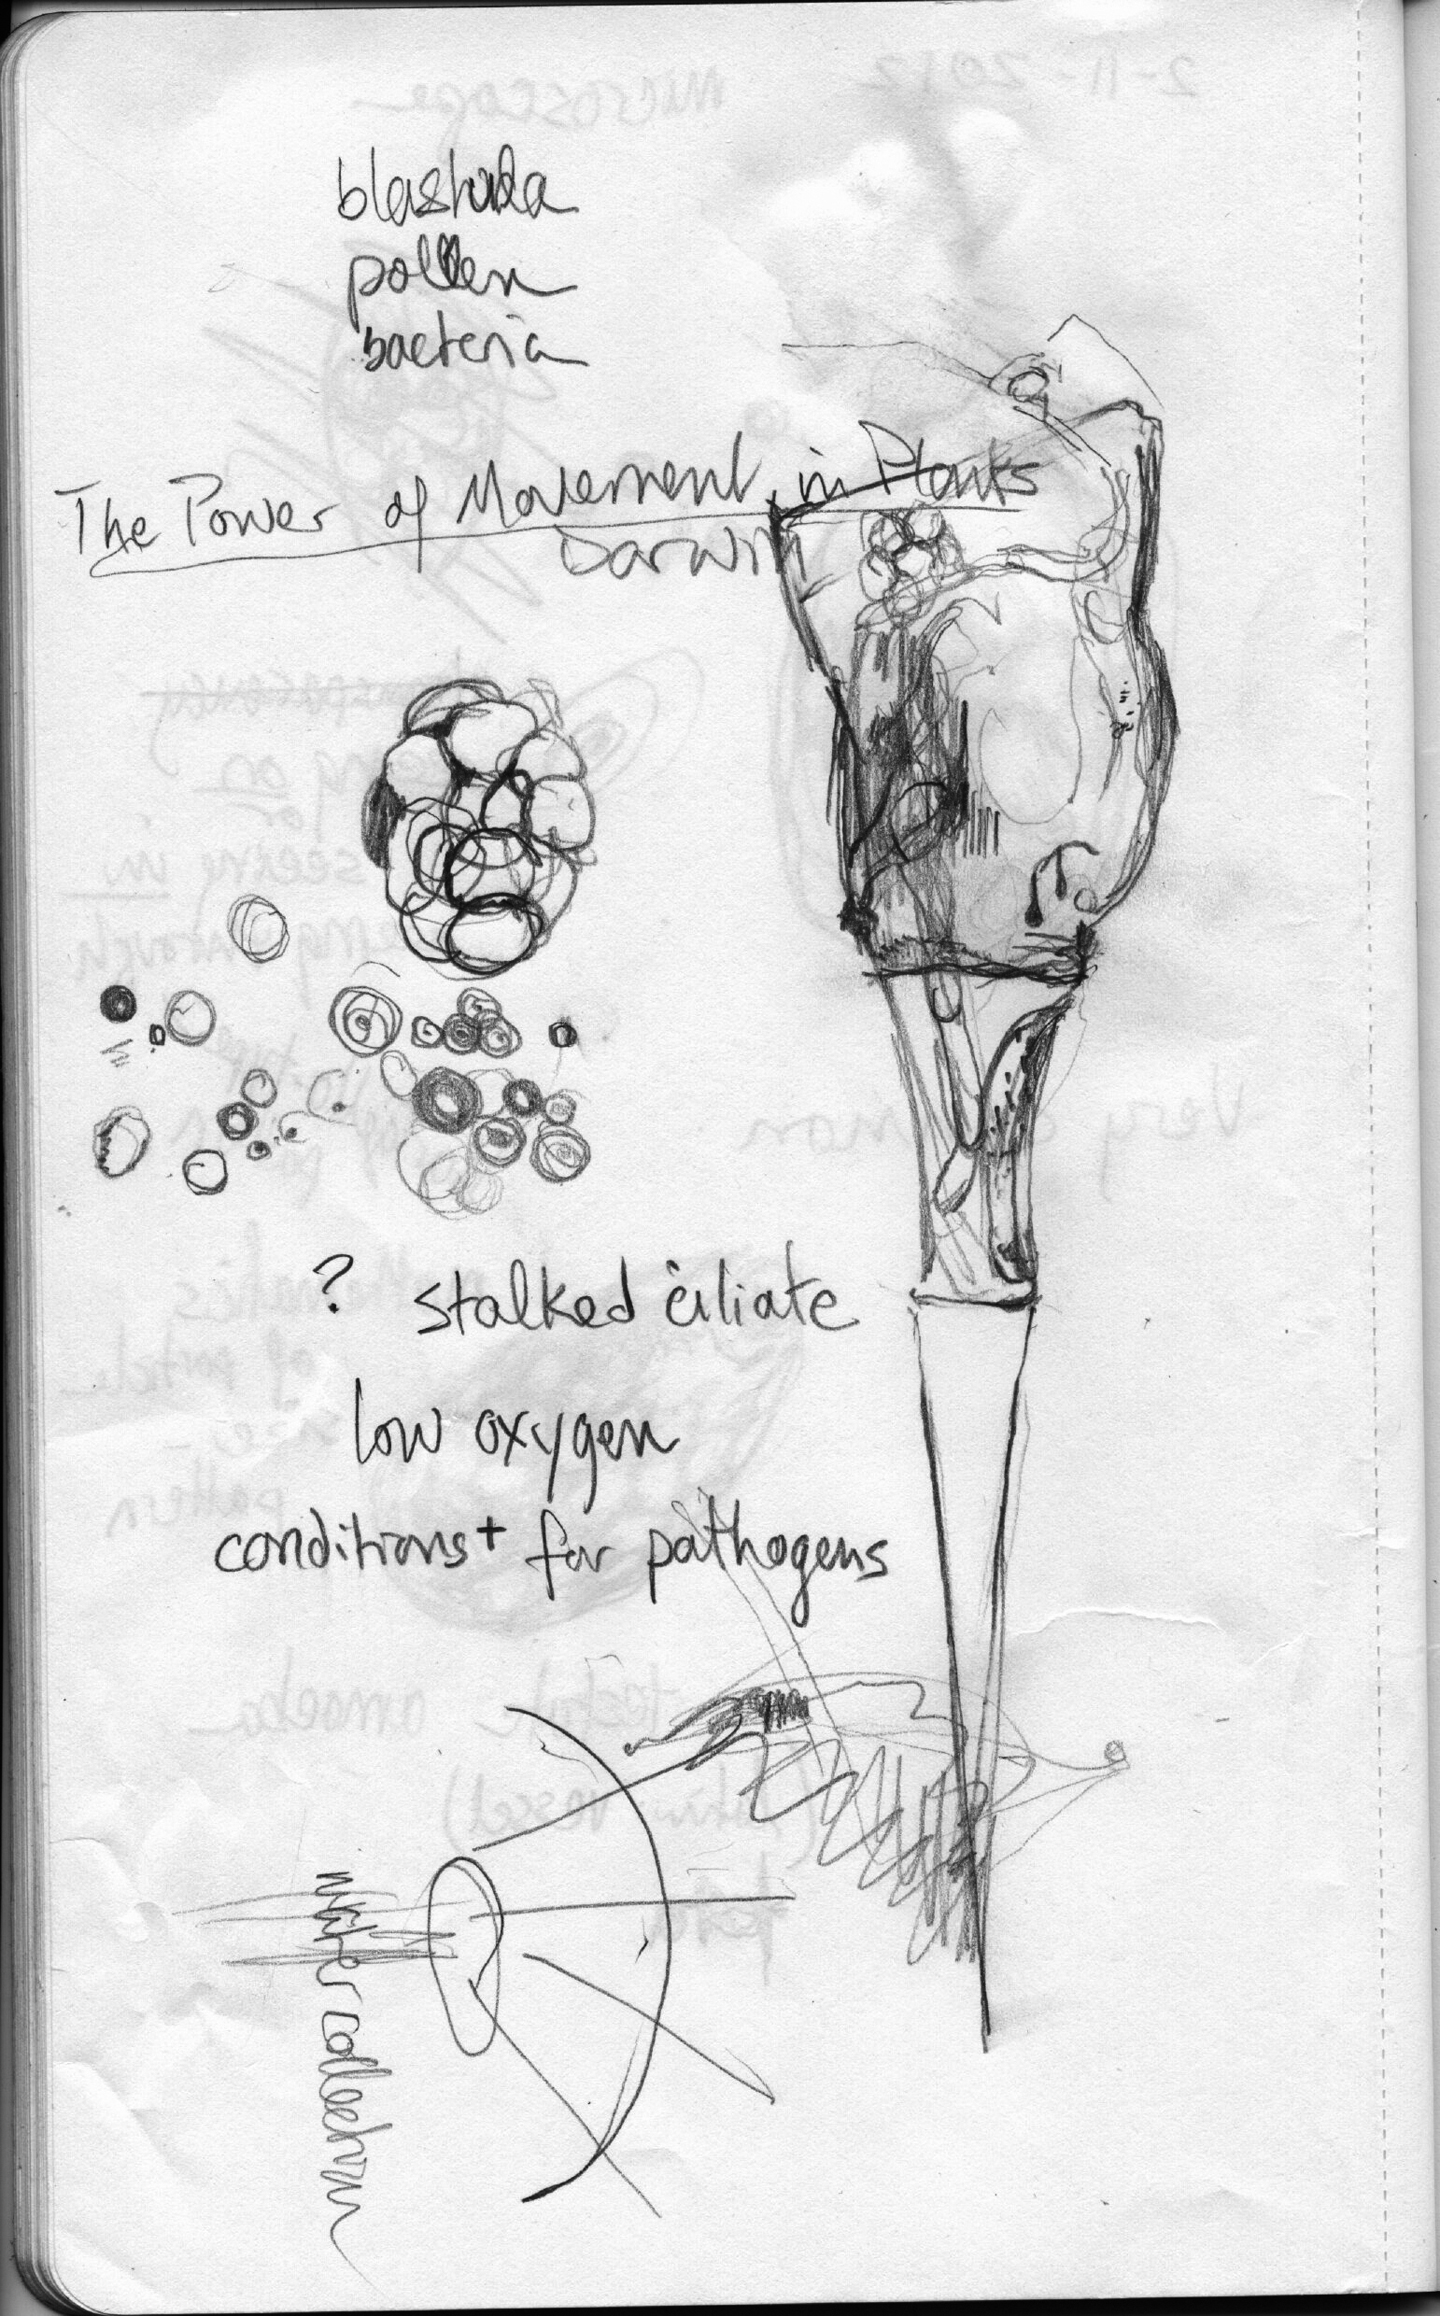 blastula
pollen
bacteria
The Power of Movement in Plants
Darwin
? stalked ciliate
low oxygen
conditions+ for pathogens
water collection